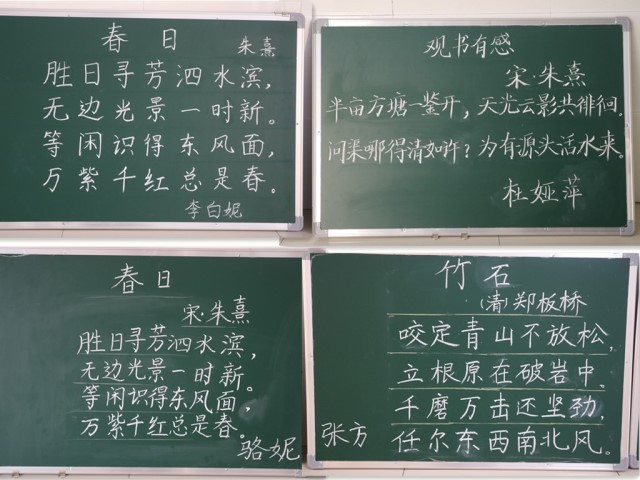 春日
朱熹
胜日寻芳泗水滨，
无边光景一时新。
等闲识得东风面，
万紫千红总是春。
李白妮
观书有感
宋·朱熹
半亩方塘一鉴开，天光云影共徘徊。
问渠哪得清如许？为有源头活水来。
杜娅萍
春日
宋·朱熹
胜日寻芳泗水滨，
无边光景一时新。
等闲识得东风面，
万紫千红总是春。
骆妮
竹石
（清）郑板桥
咬定青山不放松，
立根原在破岩中。
千磨万击还坚劲，
任尔东西南北风。
张方